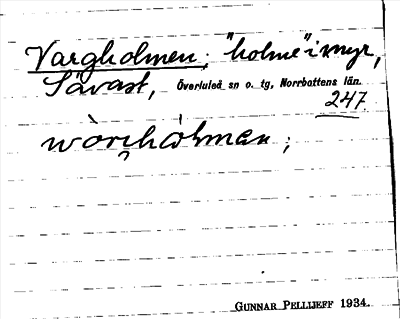 Vargholmen, "holme" i myr,
Sävast, Överluleå sn o. tg, Norrbottens län.
247.
wòrɡhólmen ;
GUNNAR PELLIJEFF 1934.